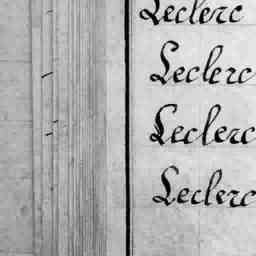 Leclerc
Leclerc
Leclerc
Leclerc